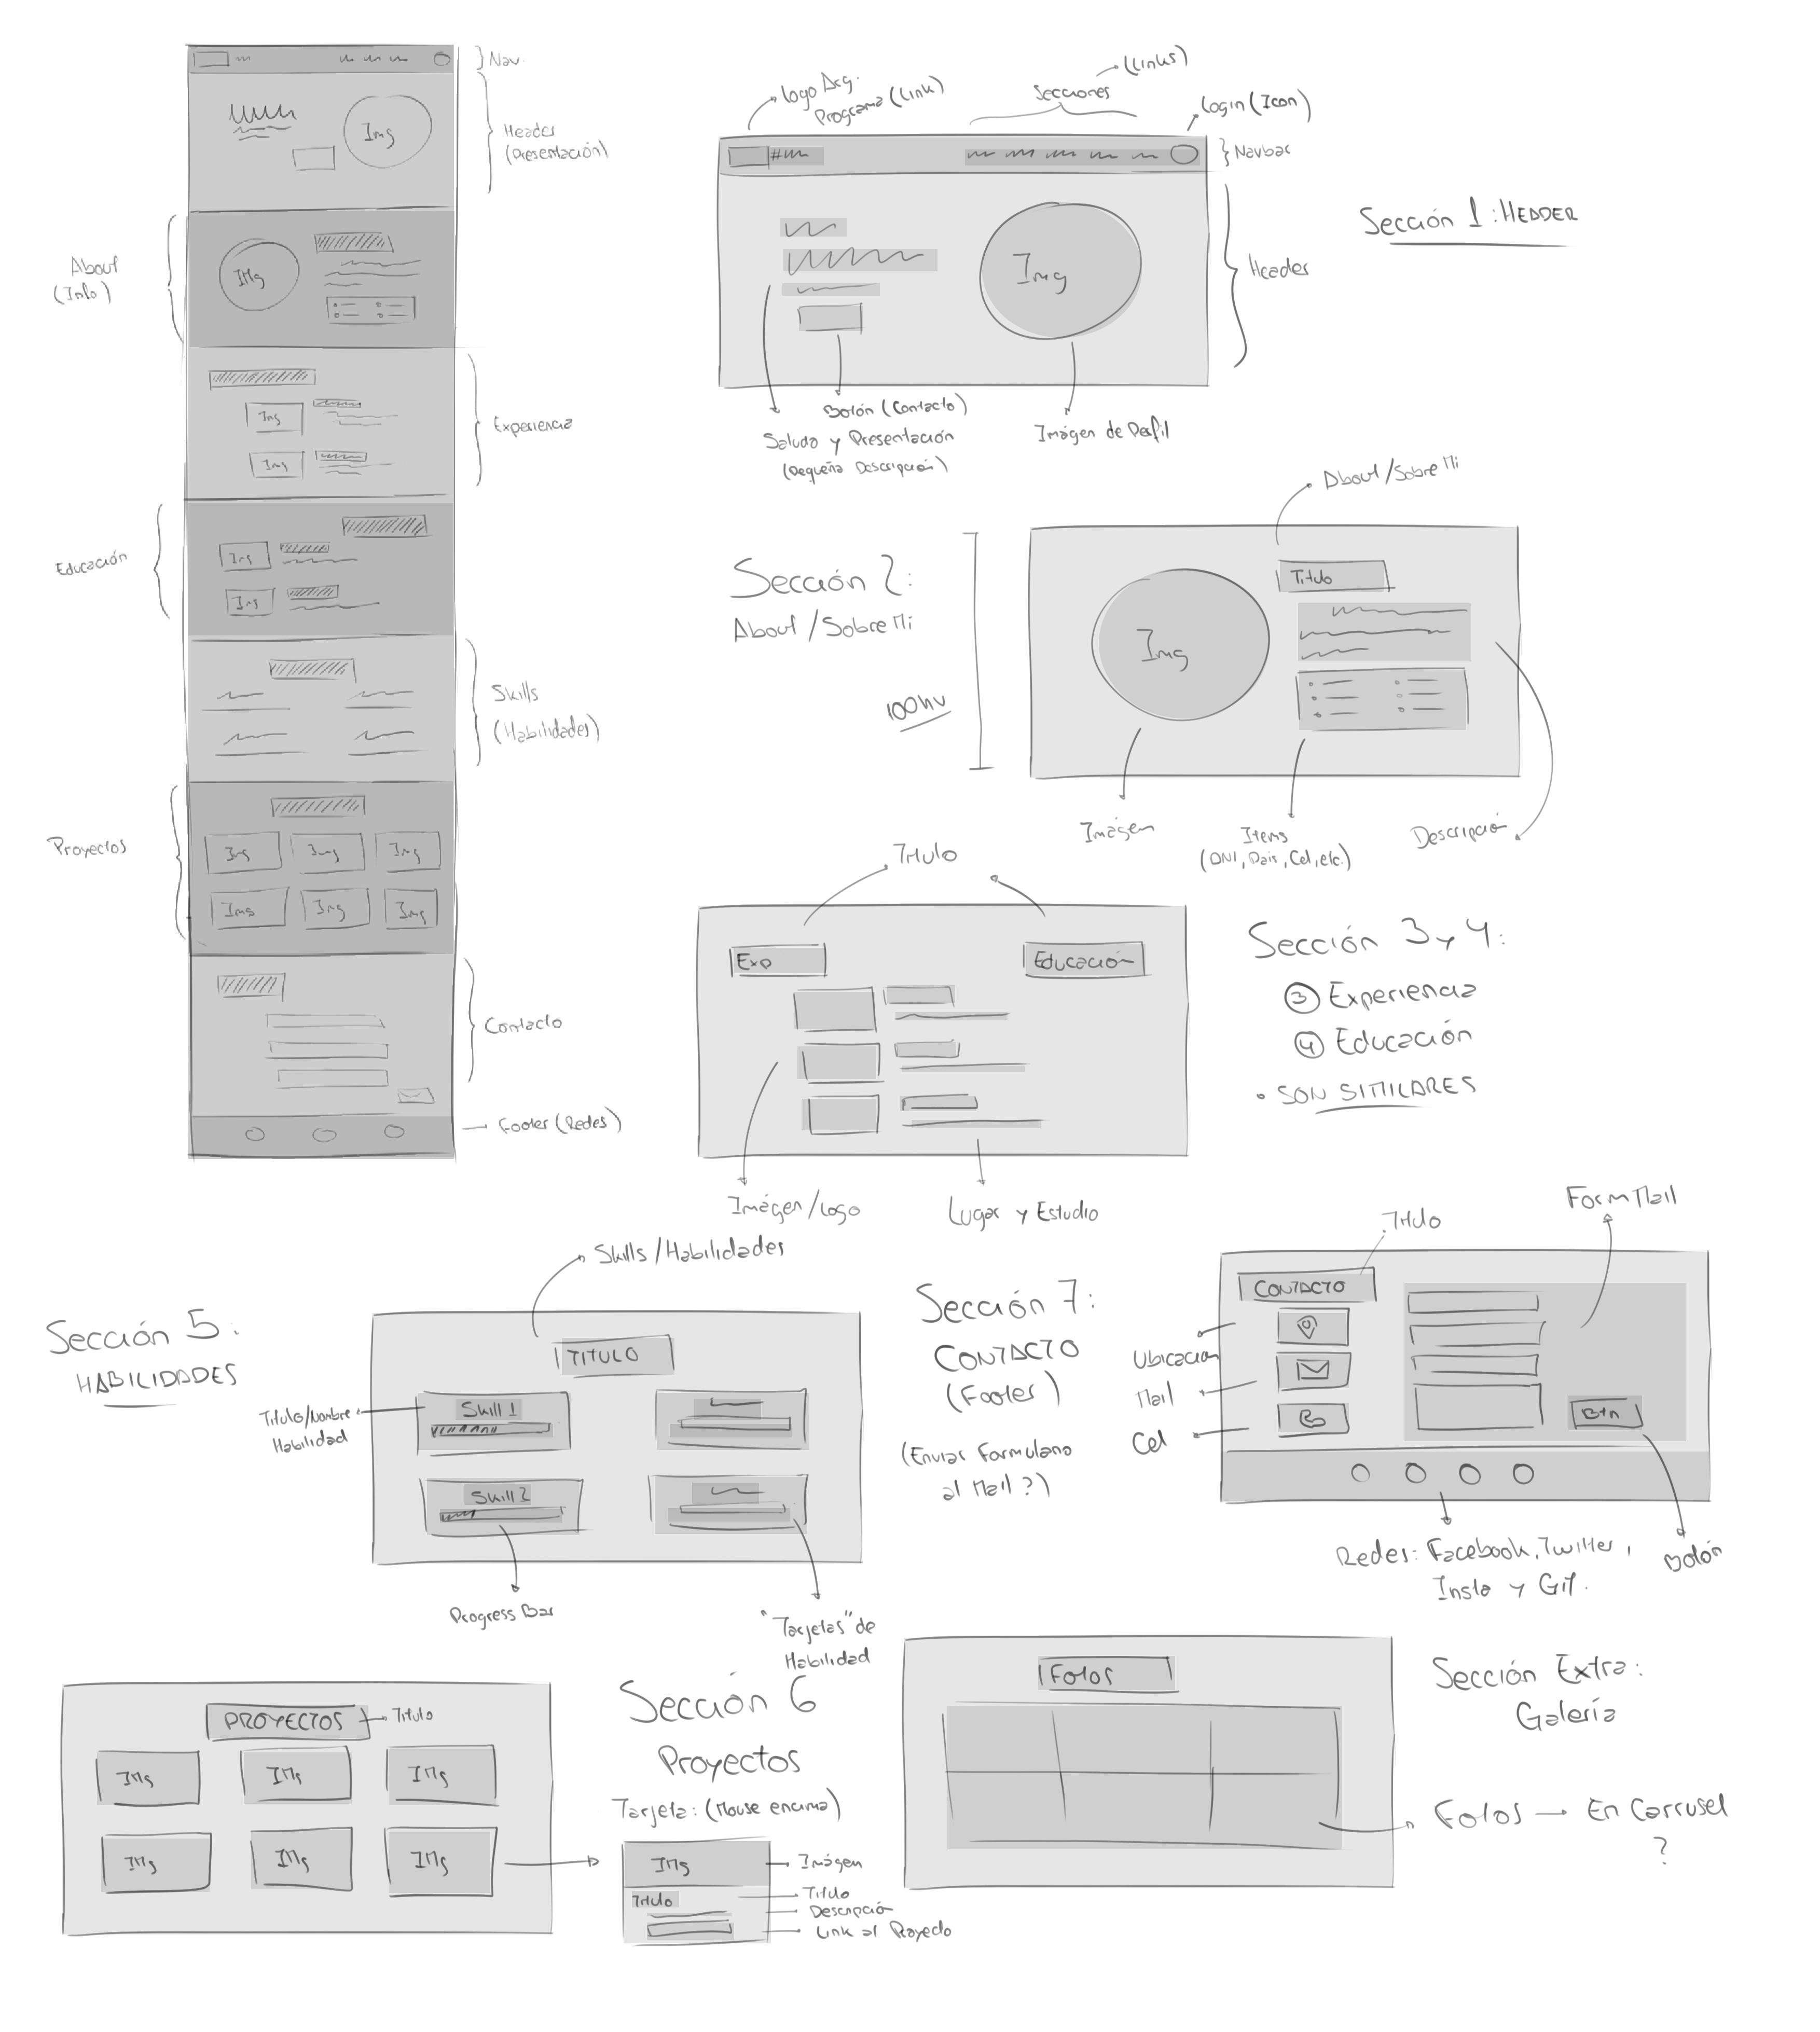 Nav.
Img
Header
(Presentación)
About
(Info)
IMg
Experiencia
Img
Img
Educación
Img
Img
Skills
(Habilidades)
Proyectos
Img
Img
Img
Img
Img
Img
Contacto
Footer (Redes)
Logo Arg.
Programa (Link)
Secciones
(Links)
Login (Icon)
Navbar
Img
Header
Botón (Contacto)
Saludo y Presentación
(Pequeña Descripción)
Imágen de Perfil
Sección 1: HEADER
Sección 2:
About / Sobre Mi
100hv
About / Sobre Mi
Titulo
Img
Imágen
Items
(DNI, Pais, Cel, etc.)
Descripción
Titulo
Exp
Educación
Imágen/Logo
Lugar y Estudio
Sección 3 y 4:
3 Experiencia
4 Educación
• SON SIMILARES
Sección 5:
HABILIDADES
Skills / Habilidades
TITULO
Titulo/Nombre
Habilidad
Skill 1
Skill 2
Progress Bar
"Tarjetas" de
Habilidad
Sección 7:
CONTACTO
(Footer)
(Enviar Formulario
al Mail?)
Titulo
Form Mail
CONTACTO
Ubicacion
Mail
Cel
Btn
Redes: Facebook, Twitter,
Insta y Git.
Botón
PROYECTOS
Titulo
IMg
IMg
IMg
IMg
IMg
IMg
Sección 6
Proyectos
Tarjeta: (Mouse encima)
IMg
Imágen
Titulo
Titulo
Descripción
Link al Proyecto
Fotos
Sección Extra:
Galería
Fotos → En Carrusel
?